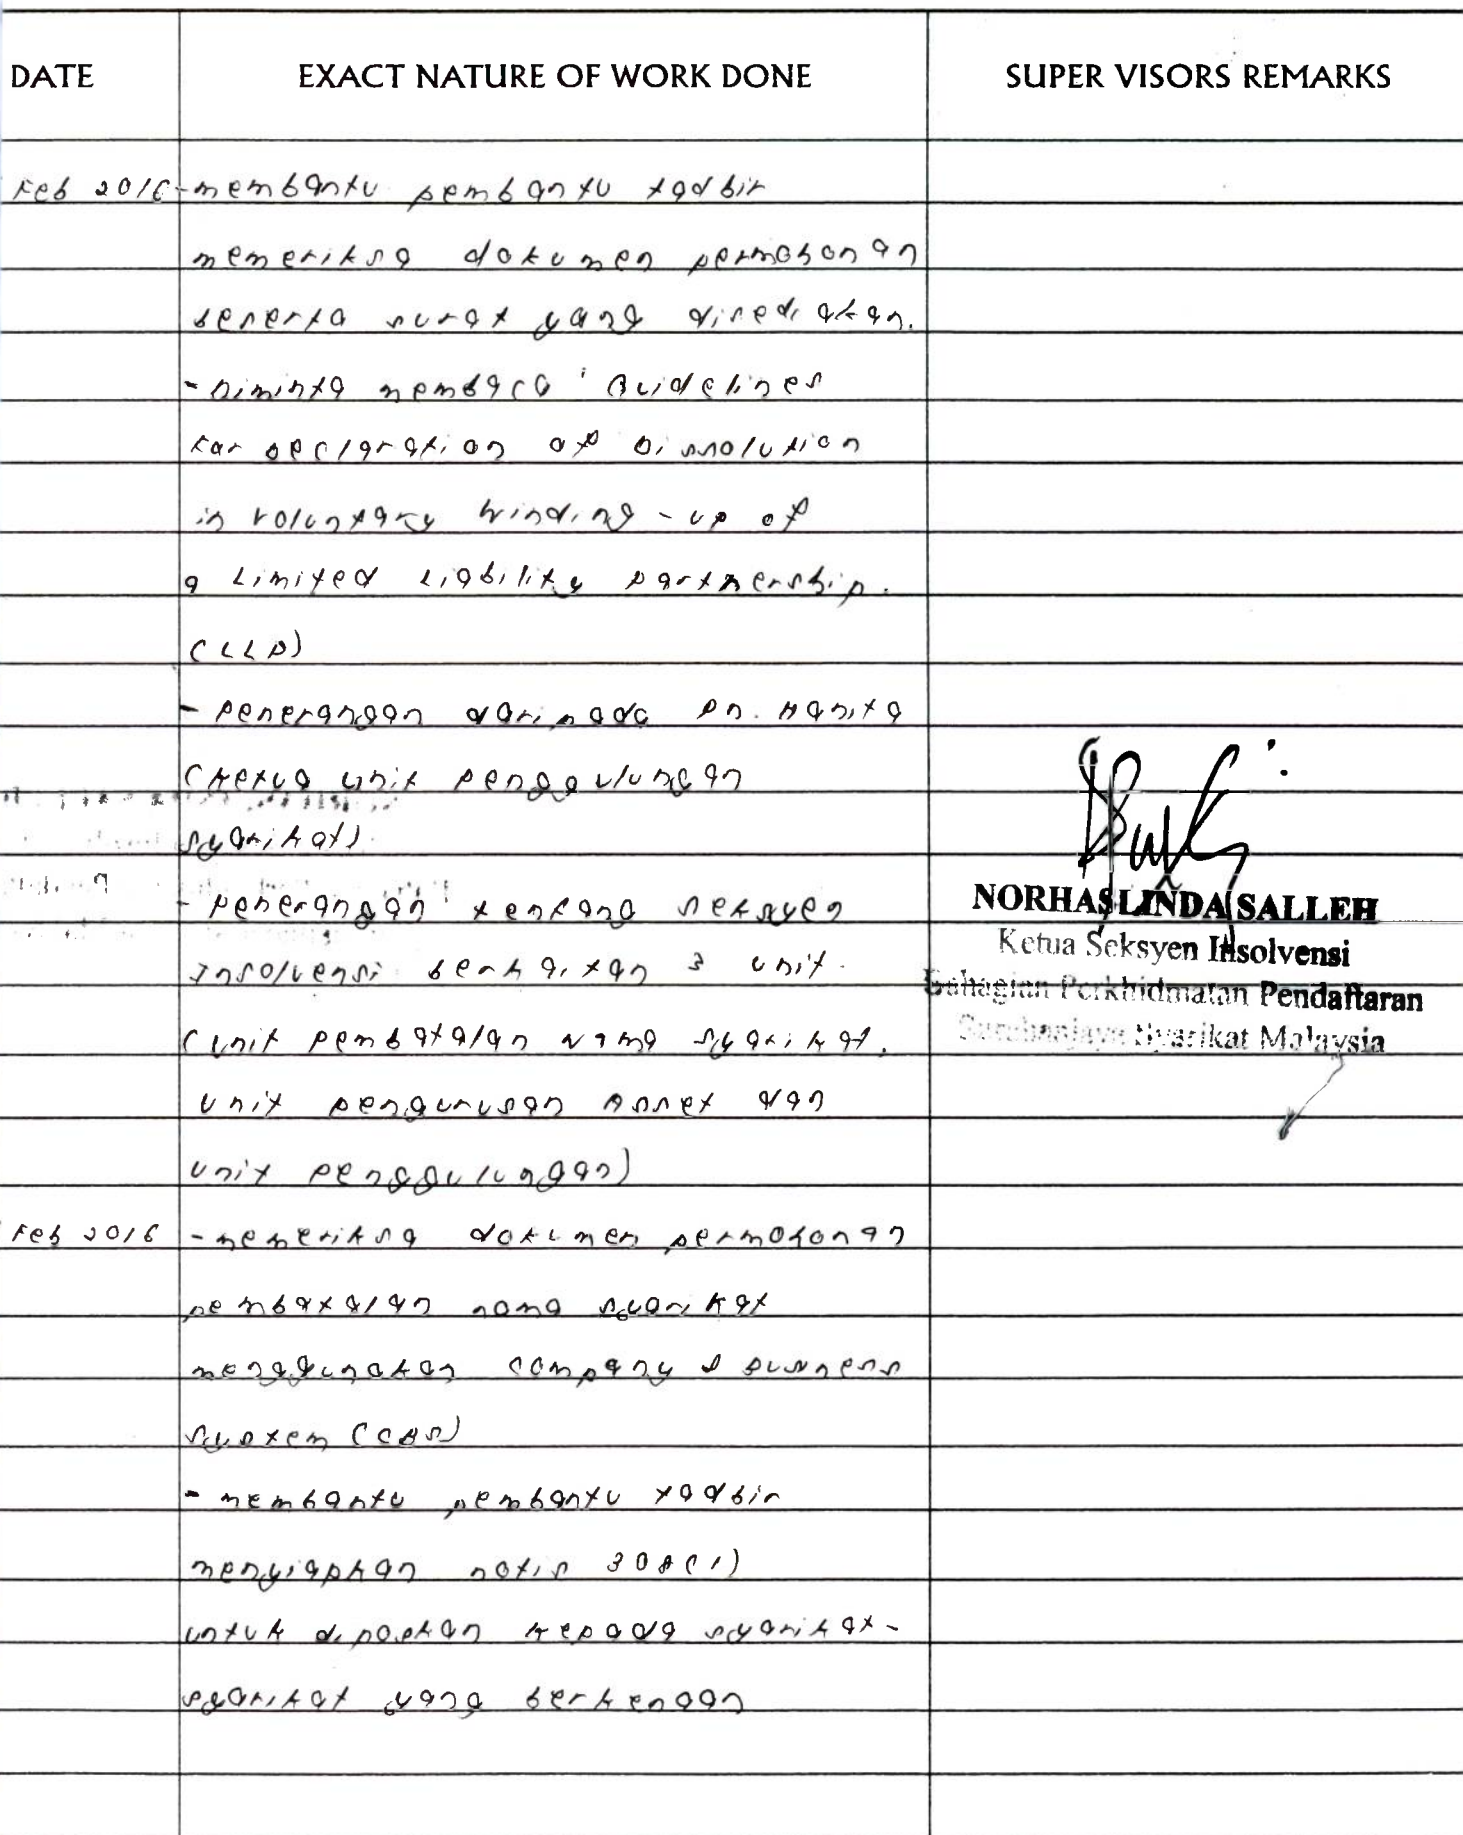 DATE EXACT NATURE OF WORK DONE SUPER VISORS REMARKS
Feb 2016 - membantu pembantu tadbir
memeriksa dokumen permohonan
beserta surat yang disediakan.
- Diminta membaca ' Guidelines
For Declaration of Dissolution
in voluntary winding - up of
a Limited Liability partnership.
(LLP)
- penerangan daripada Pn. Hanita
(Ketua unit penggulungan
syarikat)
- penerangan tentang seksyen
Insolvensi berkaitan 3 unit.
(unit pembatalan nama syarikat,
unit pengurusan Asset dan
unit penggulungan)
NORHASLINDA SALLEH
Ketua Seksyen Insolvensi
Bahagian Perkhidmatan Pendaftaran
Suruhanjaya Syarikat Malaysia
Feb 2016 - memeriksa dokumen permohonan
pembatalan nama syarikat
menggunakan company & business
system (CBS)
- membantu pembantu tadbir
menyiapkan notis 308(1)
untuk diposkan kepada syarikat-
syarikat yang berkenaan